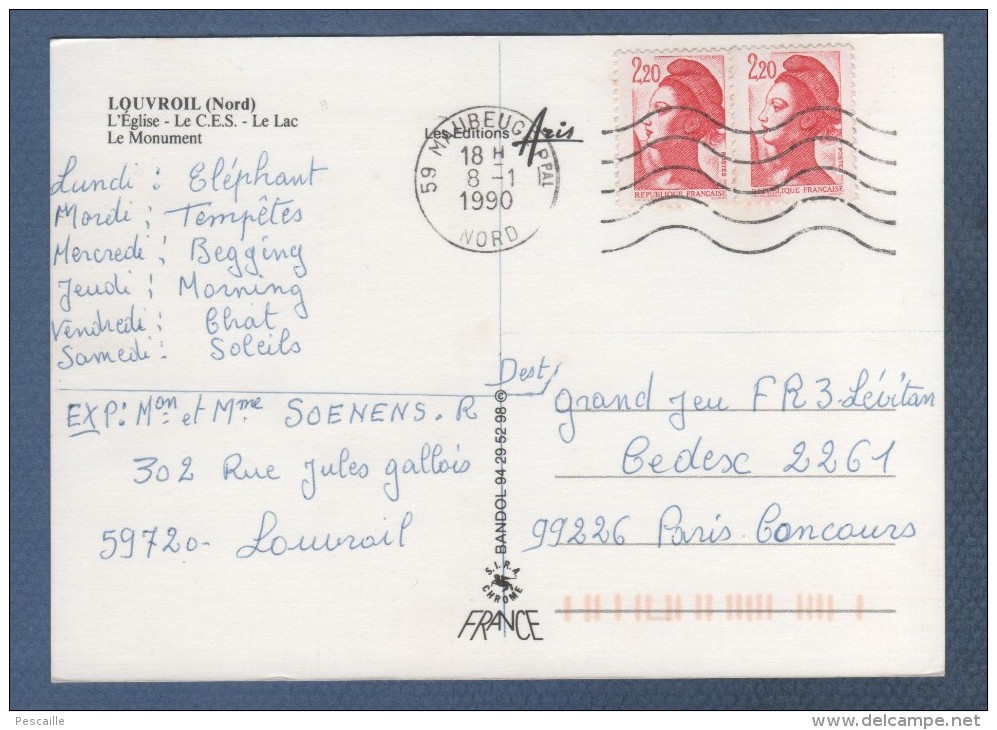 LOUVROIL (Nord)
L'Église - Le C.E.S. - Le Lac
Le Monument
Les Editions Aris
59 MAUBEUGE PPAL
18 H
8 -1
1990
NORD
2,20
POSTES
REPUBLIQUE FRANÇAISE
2,20
POSTES
REPUBLIQUE FRANÇAISE
Lundi : Eléphant
Mardi : Tempêtes
Mercredi : Begging
Jeudi : Morning
Vendredi : Chat
Samedi : Soleils
EXP : Mon et Mme SOENENS. R
302 Rue Jules gallois
59720 - Louvroil
BANDOL 94 29 52 98 ©
S.I.R.A.
CHROME
FRANCE
Dest/
grand Jeu FR3-Lévitan
Cedex 2261
99226 Paris Concours
Pescaille
delcampe.net